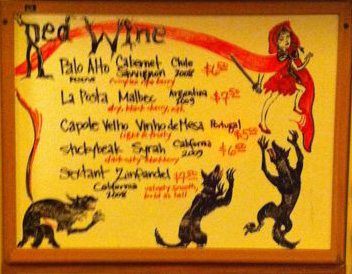 Red Wine
Palo Alto Cabernet Chile
RESERVE Sauvignon 2008 $6.50
La Posta Malbec Argentina $7.50
2009
dry, black cherry, oak
Capote Velho Vinho de Mesa Portugal
light & fruity $5.00
Sticky beak Syrah California $6.50
2009
Sextant Zinfandel $9.50
California velvety smooth,
2008 bold as hell